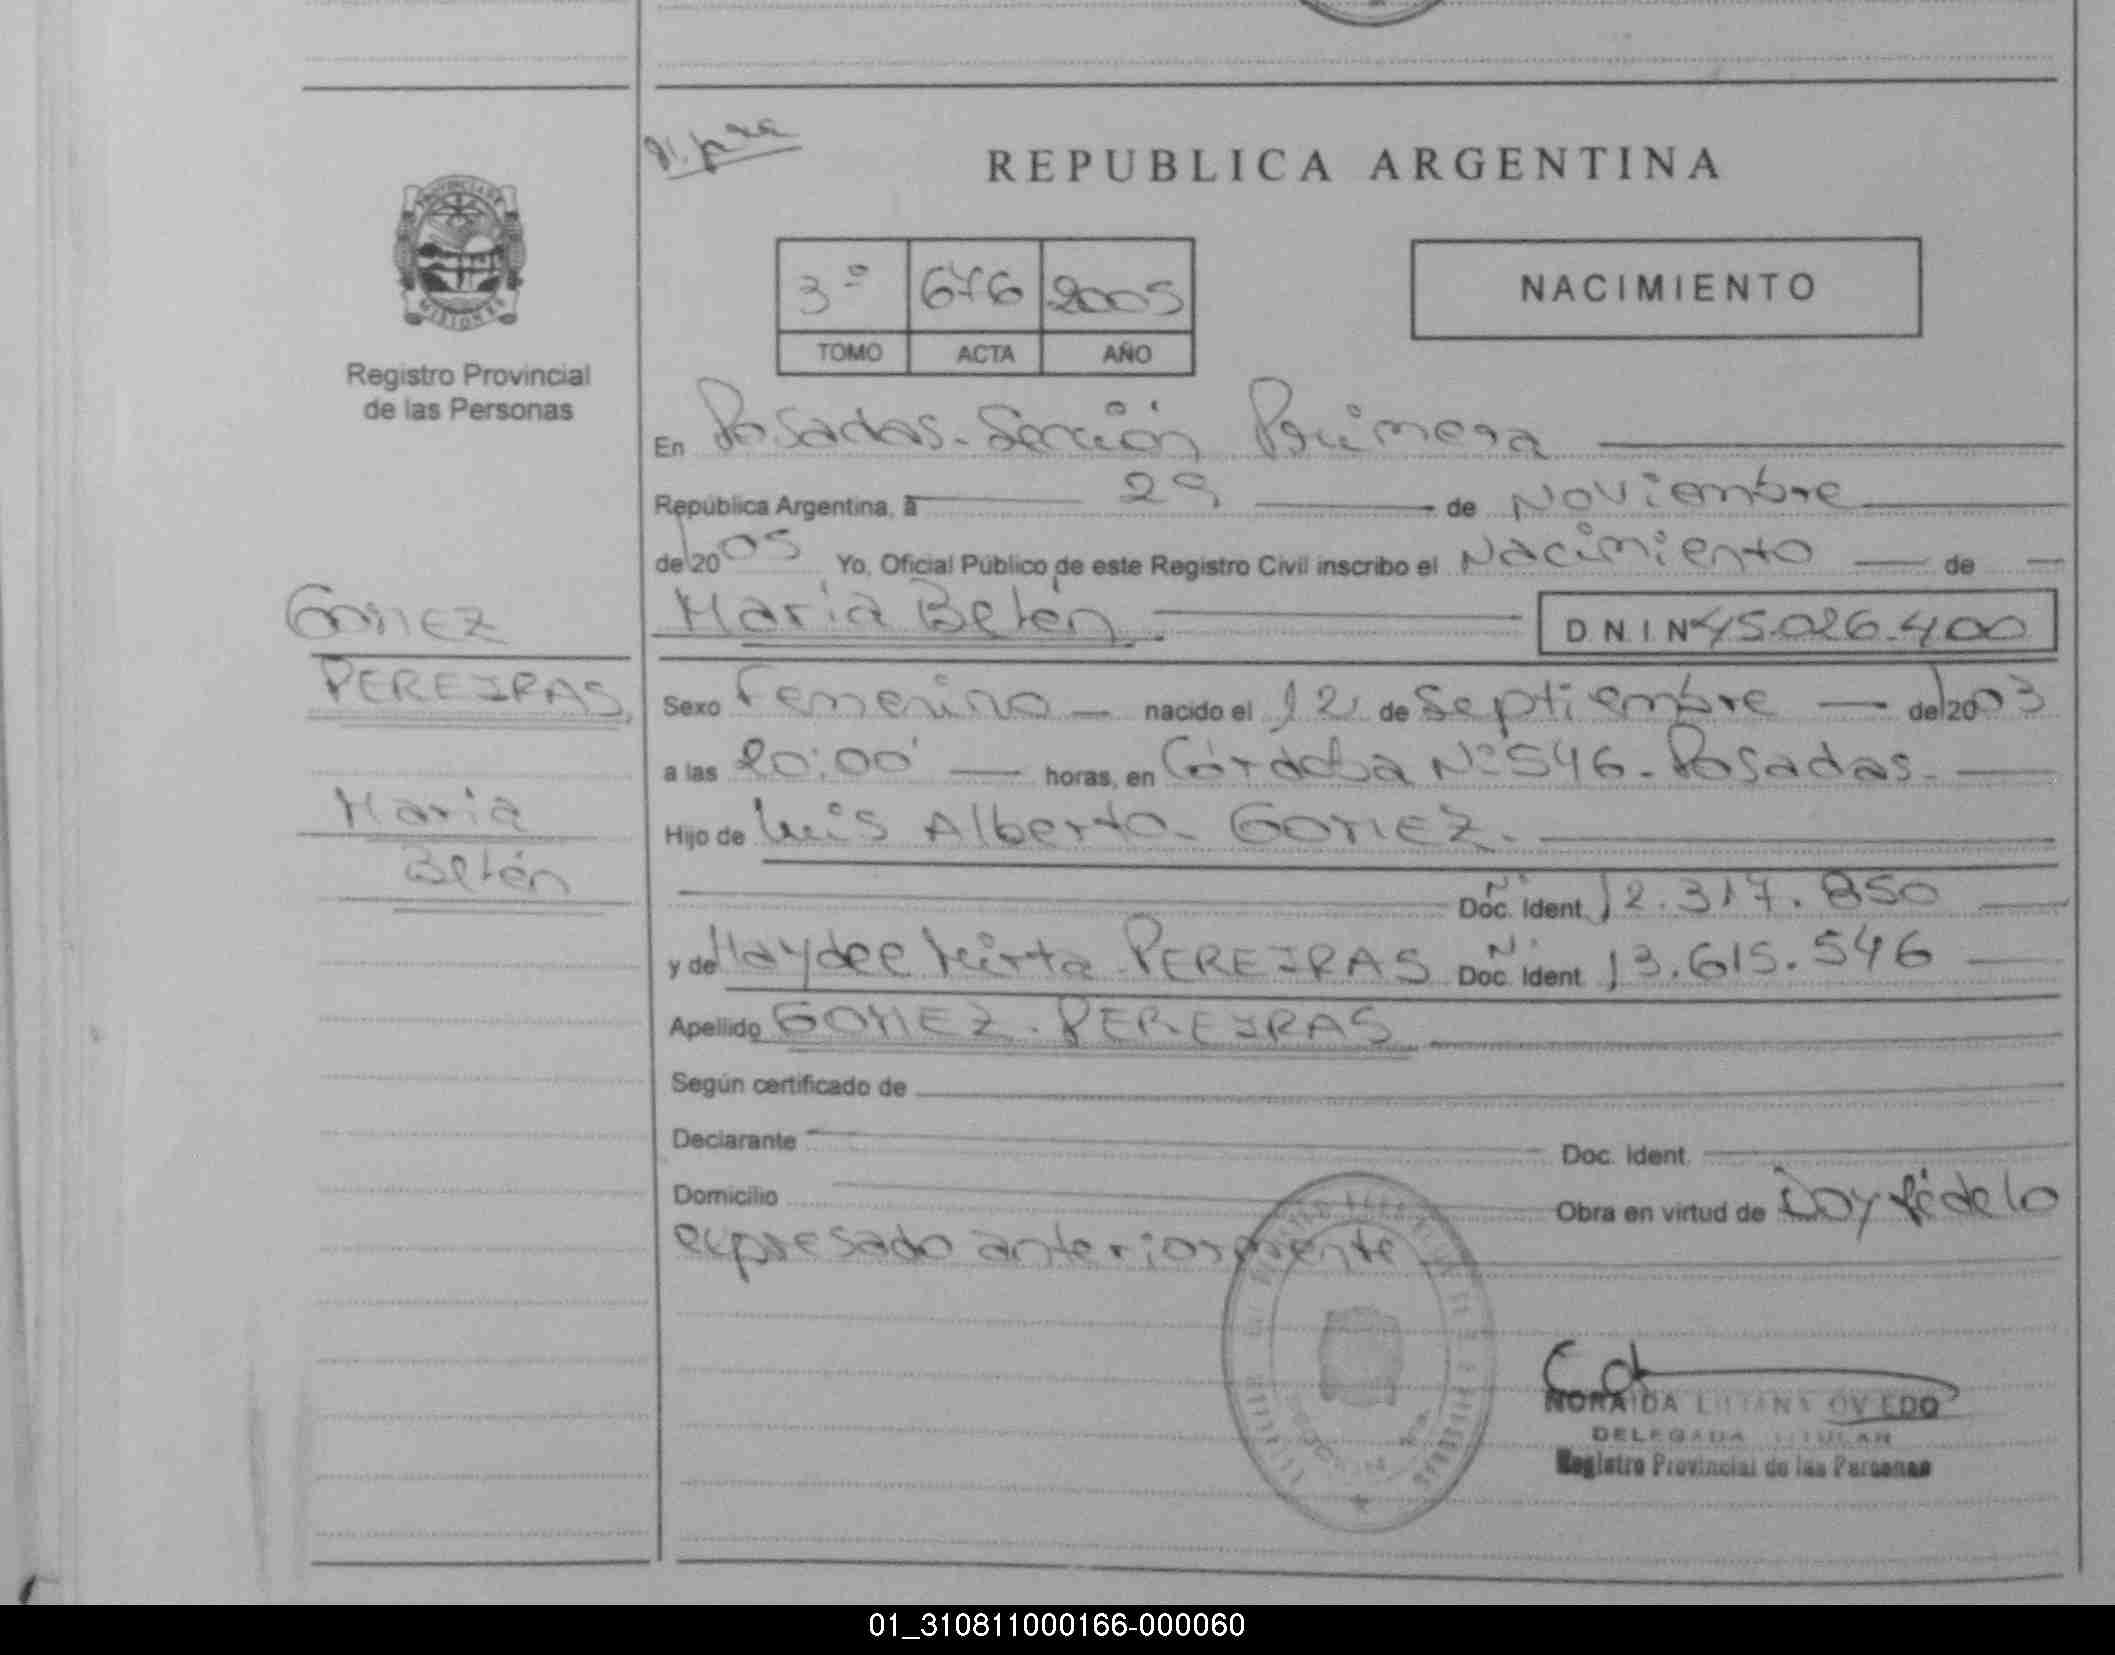 REPUBLICA ARGENTINA
PROVINCIA DE
MISIONES
Registro Provincial
de las Personas
3º 676 2005
TOMO ACTA AÑO
NACIMIENTO
En Posadas - Sección Primera
República Argentina, a 29 de Noviembre
de 2005 Yo, Oficial Público de este Registro Civil inscribo el Nacimiento de
María Belén. D N I Nº 45.026.400
GOMEZ
PEREIRAS,
María
Belén
Sexo Femenino nacido el 12 de Septiembre de 2003
a las 20:00 horas, en Córdoba Nº 546 - Posadas.
Hijo de Luis Alberto GOMEZ.
Doc. Ident. Nº 12.317.850
y de Haydee Mirta PEREIRAS Doc. Ident. Nº 13.615.546
Apellido GOMEZ - PEREIRAS
Según certificado de
Declarante Doc. Ident.
Domicilio Obra en virtud de Doy fé de lo
expresado anteriormente
NORAIDA LILIANA OVIEDO
DELEGADA TITULAR
Registro Provincial de las Personas
01_310811000166-000060